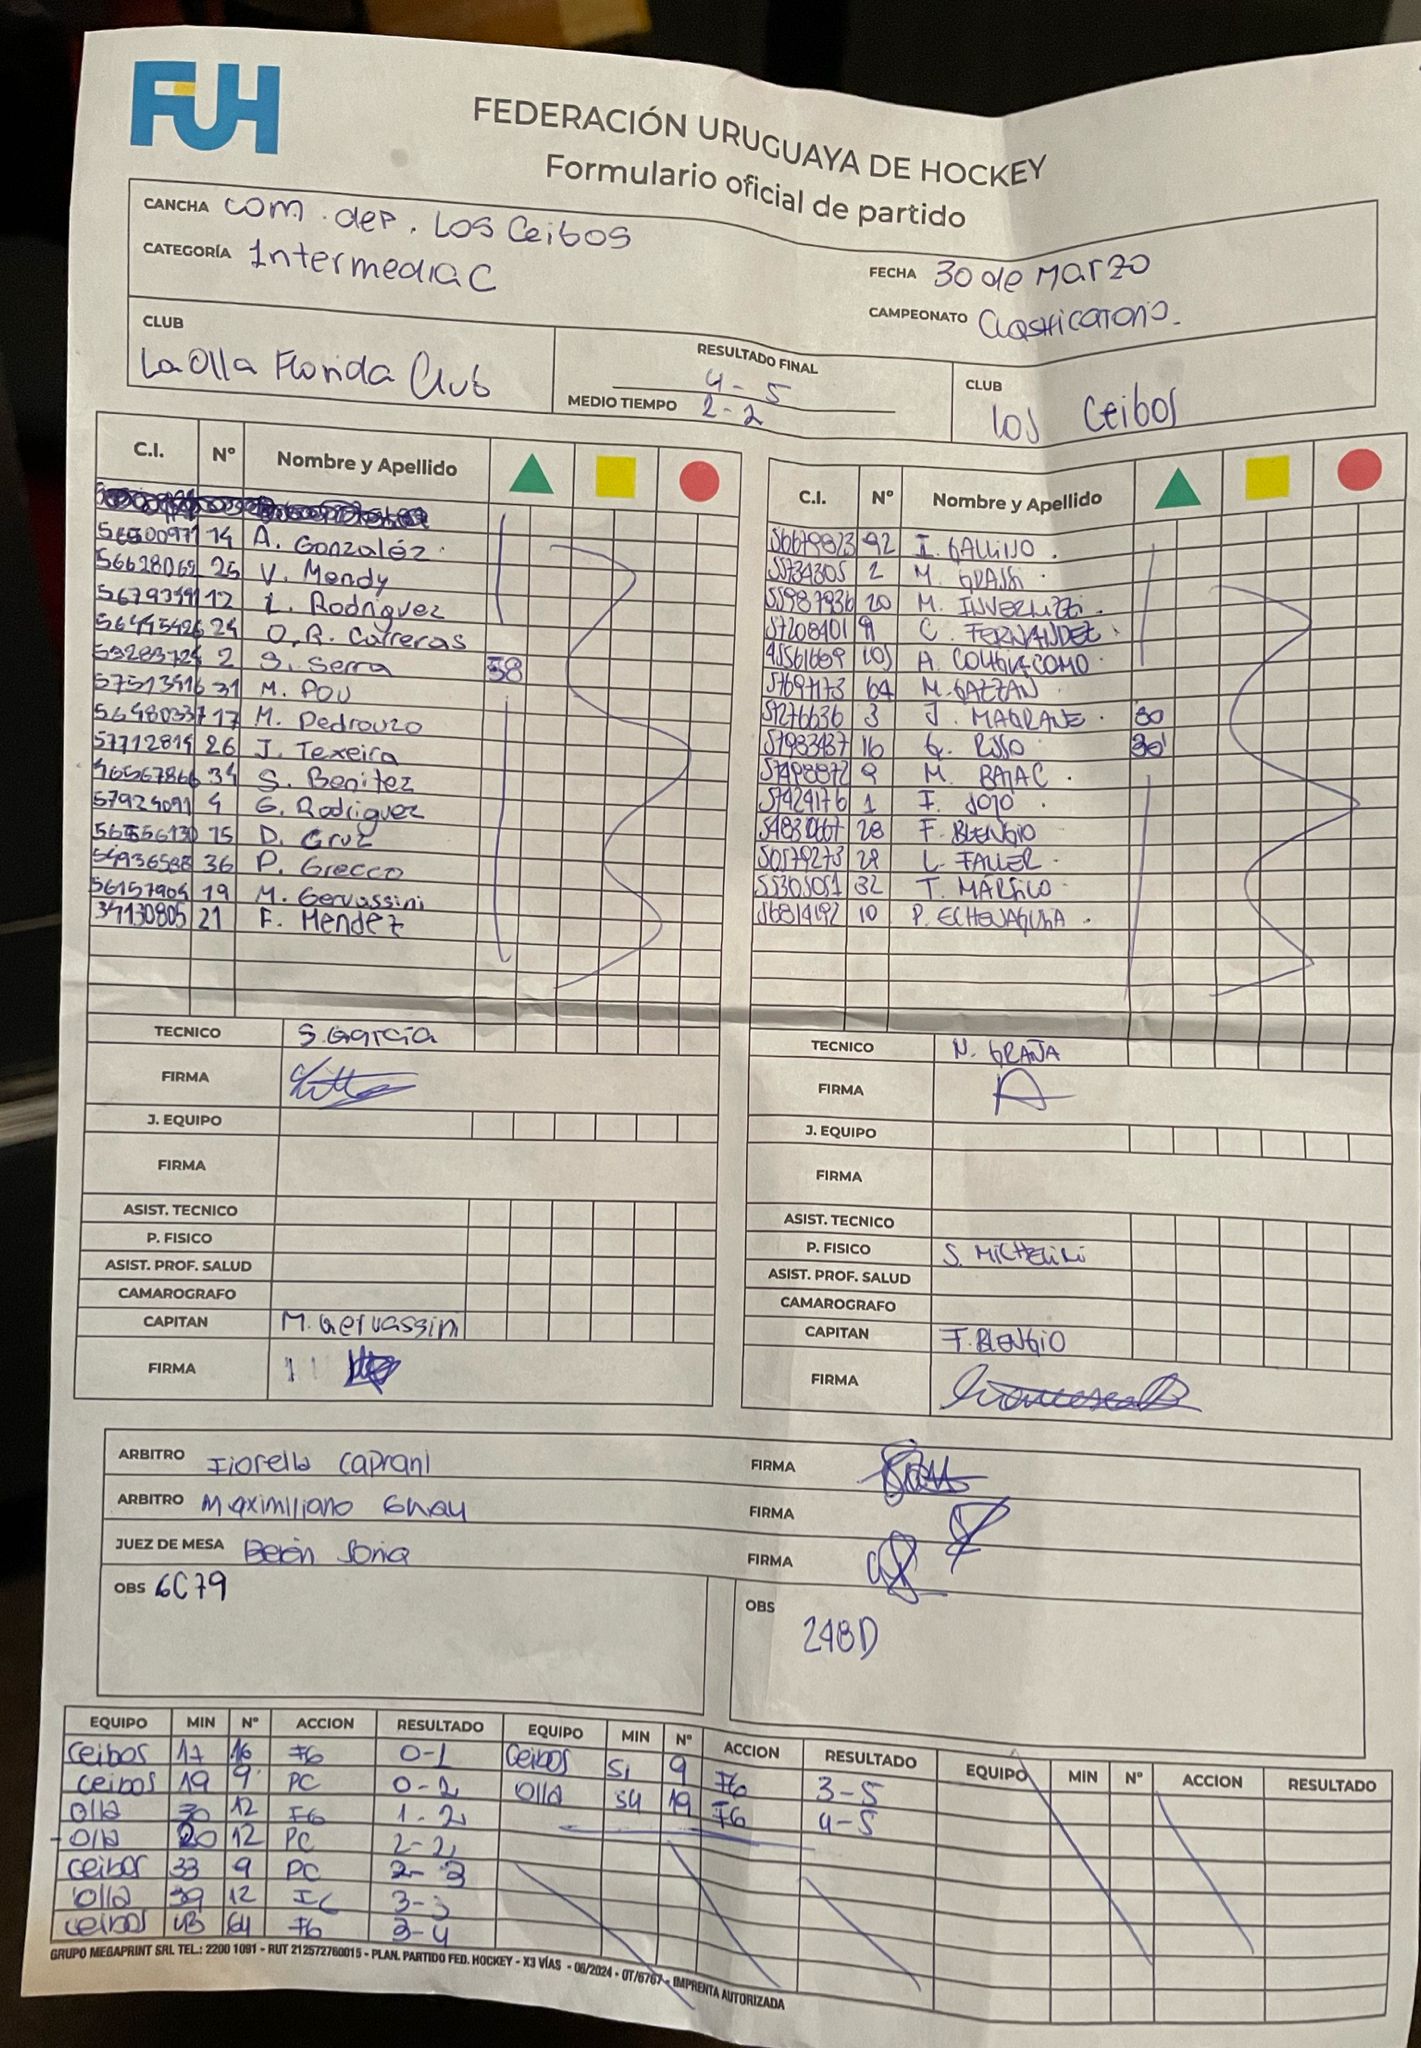 FUH
FEDERACIÓN URUGUAYA DE HOCKEY
Formulario oficial de partido
CANCHA Com. dep. Los Ceibos
CATEGORÍA Intermedia C
FECHA 30 de Marzo
CAMPEONATO Clasificatorio.
CLUB La Olla Florida Club
RESULTADO FINAL 4-5
MEDIO TIEMPO 2-2
CLUB Los Ceibos
C.I. Nº Nombre y Apellido
14 A. Gonzaléz
56628069 25 V. Mendy
12 L. Rodriguez
24 O. R. Carreras
2 S. Serra 58
31 M. POU
17 M. Pedrouzo
57712814 26 J. Texeira
34 S. Benitez
4 G. Rodriguez
15 D. Cruz
54936588 36 P. Grecco
56157904 19 M. Gervassini
34130805 21 F. Mendez
TECNICO S. García
FIRMA
J. EQUIPO
FIRMA
ASIST. TECNICO
P. FISICO
ASIST. PROF. SALUD
CAMAROGRAFO
CAPITAN M. Gervassini
FIRMA
C.I. Nº Nombre y Apellido
56679823 92 I. GALLINO.
55734305 2 M. GRASSI.
55987936 20 M. INVERNIZZI.
57208401 9 C. FERNANDEZ.
A.
57697173 64 M. GAZZAN
51276636 3 J. MAGRANE. 30
57983437 16 G. RISSO 30'
M.
57424176 1
28 F. BLENGIO
50579273 L. FALLER.
55305051 32 T.
56814192 10 P.
TECNICO N. GRAÑA
FIRMA
J. EQUIPO
FIRMA
ASIST. TECNICO
P. FISICO S. MICHELINI
ASIST. PROF. SALUD
CAMAROGRAFO
CAPITAN F. BLENGIO
FIRMA
ARBITRO Fiorella Caprani FIRMA
ARBITRO Maximiliano FIRMA
JUEZ DE MESA Belén Soria FIRMA
OBS 6C79
OBS 24BD
EQUIPO MIN Nº ACCION RESULTADO EQUIPO MIN Nº ACCION RESULTADO EQUIPO MIN Nº ACCION RESULTADO
Ceibos 17 16 FG 0-1 Ceibos 51 9 FG 3-5
Ceibos 19 9 PC 0-2 Olla 54 19 FG 4-5
Olla 12 FG 1-2
Olla 12 PC 2-2
Ceibos 33 9 PC 2-3
Olla 39 12 3-3
Ceibos 43 64 FG 3-4
GRUPO MEGAPRINT SRL TEL.: 2200 1091 - RUT 212572760015 - PLAN. PARTIDO FED. HOCKEY - X3 VÍAS - 06/2024 - OT/6767 - IMPRENTA AUTORIZADA